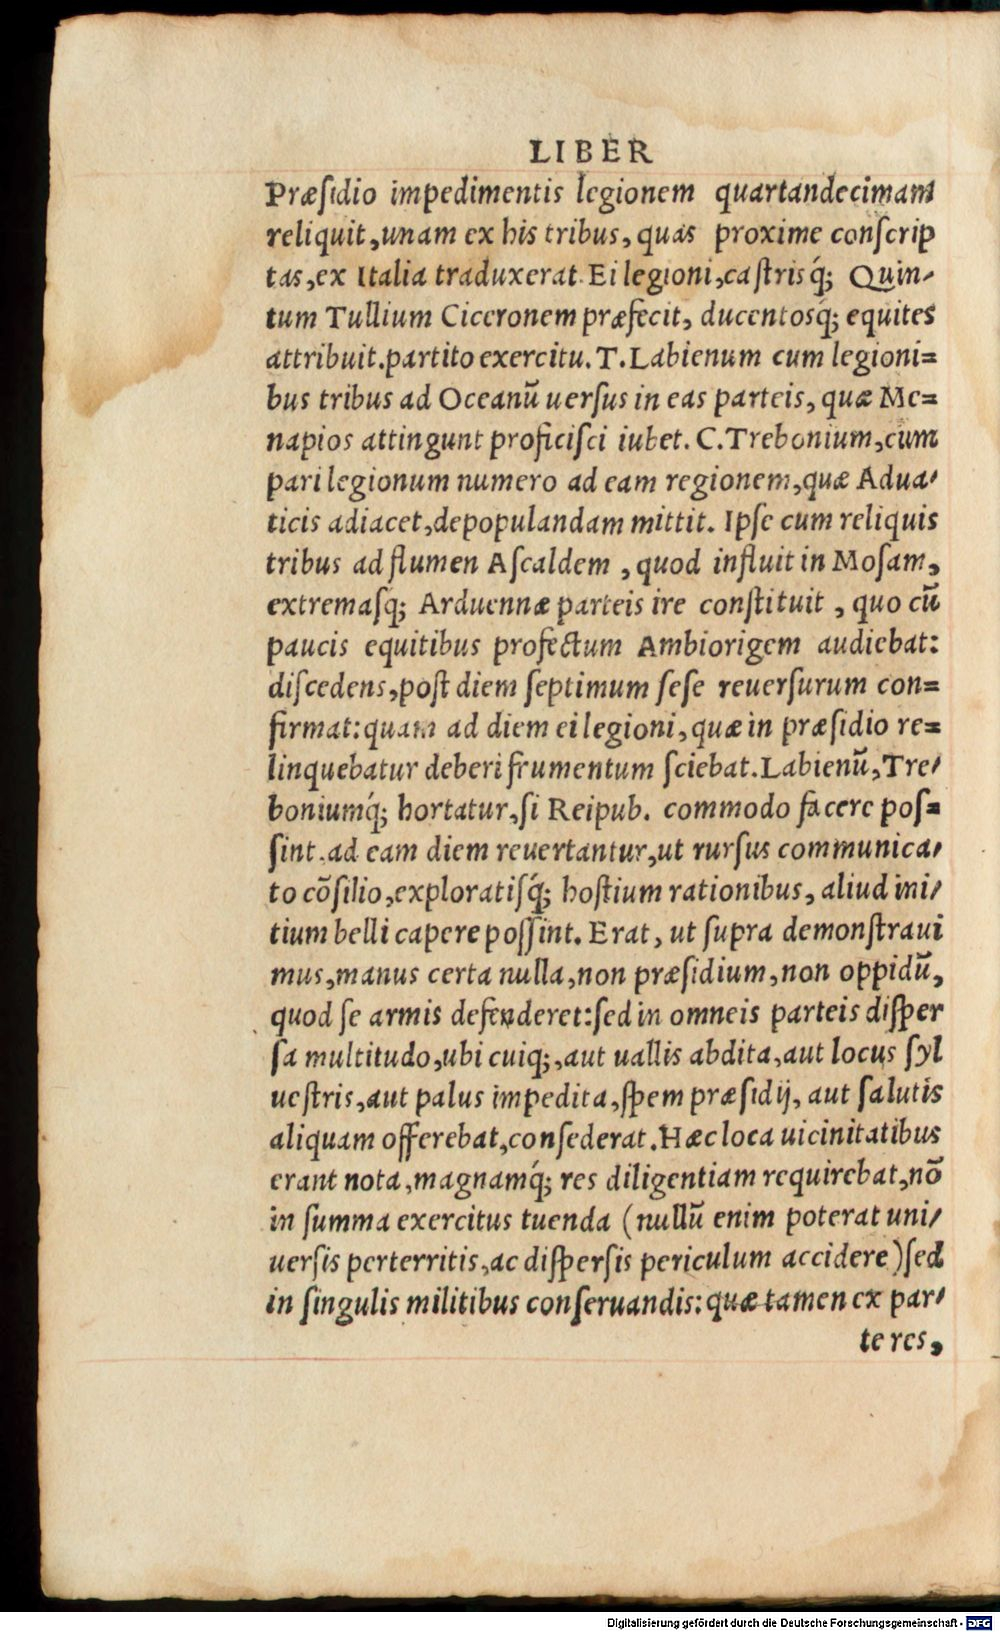 LIBER
Præſidio impedimentis legionem quartandecimam
reliquit,unam ex his tribus, quas proxime conſcrip
tas,ex Italia traduxerat. Ei legioni,caſtrisq́; Quin-
tum Tullium Ciceronem præfecit, ducentosq́; equites
attribuit.partito exercitu. T. Labienum cum legioni=
bus tribus ad Oceanū uerſus in eas parteis, quæ Me=
napios attingunt proficiſci iubet. C.Trebonium,cum
pari legionum numero ad eam regionem,quæ Adua-
ticis adiacet,depopulandam mittit. Ipſe cum reliquis
tribus ad flumen Aſcaldem , quod influit in Moſam,
extremaſq́; Arduennæ parteis ire conſtituit , quo cū
paucis equitibus profectum Ambiorigem audiebat:
diſcedens,poſt diem ſeptimum ſeſe reuerſurum con=
firmat:quam ad diem ei legioni, quæ in præſidio re=
linquebatur deberi frumentum ſciebat.Labienū,Tre-
boniumq́; hortatur,ſi Reipub. commodo facere poſ=
ſint.ad eam diem reuertantur,ut rurſus communica-
to cōſilio,exploratiſq́; hoſtium rationibus, aliud ini-
tium belli capere poſſint. Erat, ut ſupra demonſtraui
mus,manus certa nulla,non præſidium,non oppidū,
quod ſe armis defenderet:ſed in omneis parteis diſper
ſa multitudo,ubi cuiq;,aut uallis abdita,aut locus ſyl
ueſtris,aut palus impedita,ſpem præſidij, aut ſalutis
aliquam offerebat,conſederat.Hæc loca uicinitatibus
erant nota,magnamq́; res diligentiam requirebat,nō
in ſumma exercitus tuenda (nullū enim poterat uni-
uerſis perterritis,ac diſperſis periculum accidere)ſed
in ſingulis militibus conſeruandis:quæ tamen ex par-
te res,
Digitalisierung gefördert durch die Deutsche Forschungsgemeinschaft - DFG